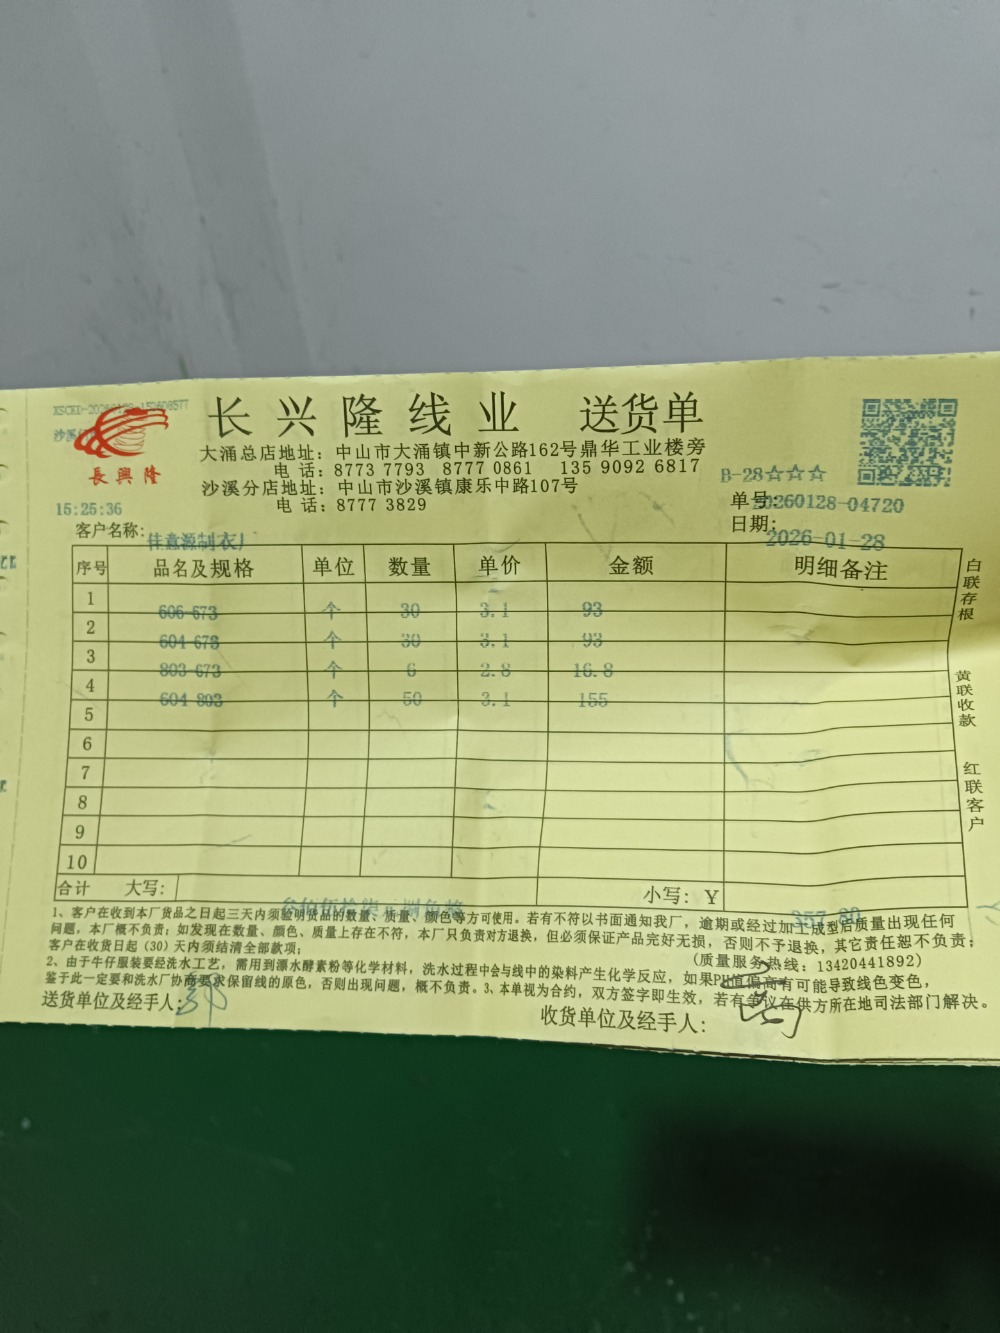 长兴隆线业 送货单
長興隆
大涌总店地址：中山市大涌镇中新公路162号鼎华工业楼旁
电 话：8773 7793 8777 0861 135 9092 6817
沙溪分店地址：中山市沙溪镇康乐中路107号
电 话：8777 3829
B-28☆☆☆
15:25:36
单号: 20260128-04720
客户名称: 佳意源制衣厂
日期: 2026-01-28
序号 品名及规格 单位 数量 单价 金额 明细备注
1 606-673 个 30 3.1 93
2 604-673 个 30 3.1 93
3 803-673 个 6 2.8 16.8
4 604-803 个 50 3.1 155
5
6
7
8
9
10
合计 大写: 叁佰伍拾柒元捌角整 小写: Y 357.80
白联存根
黄联收款
红联客户
1、客户在收到本厂货品之日起三天内须验明货品的数量、质量、颜色等方可使用。若有不符以书面通知我厂，逾期或经过加工成型后质量出现任何
问题，本厂概不负责；如发现在数量、颜色、质量上存在不符，本厂只负责对方退换，但必须保证产品完好无损，否则不予退换，其它责任恕不负责；
客户在收货日起（30）天内须结清全部款项；
(质量服务热线：13420441892)
2、由于牛仔服装要经洗水工艺，需用到漂水酵素粉等化学材料，洗水过程中会与线中的染料产生化学反应，如果PH值偏高有可能导致线色变色，
鉴于此一定要和洗水厂协商要求保留线的原色，否则出现问题，概不负责。3、本单视为合约，双方签字即生效，若有争议在供方所在地司法部门解决。
送货单位及经手人:
收货单位及经手人: